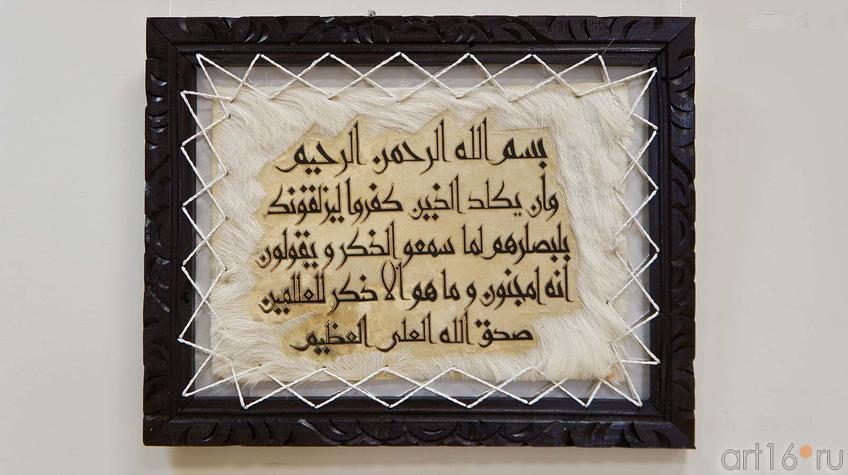 بسم الله الرحمن الرحيم
وان يكاد الذين كفروا ليزلقونك
بابصارهم لما سمعو الذكر و يقولون
انه لمجنون و ما هو الا ذكر للعالمين
صدق الله العلى العظيم
art16.ru